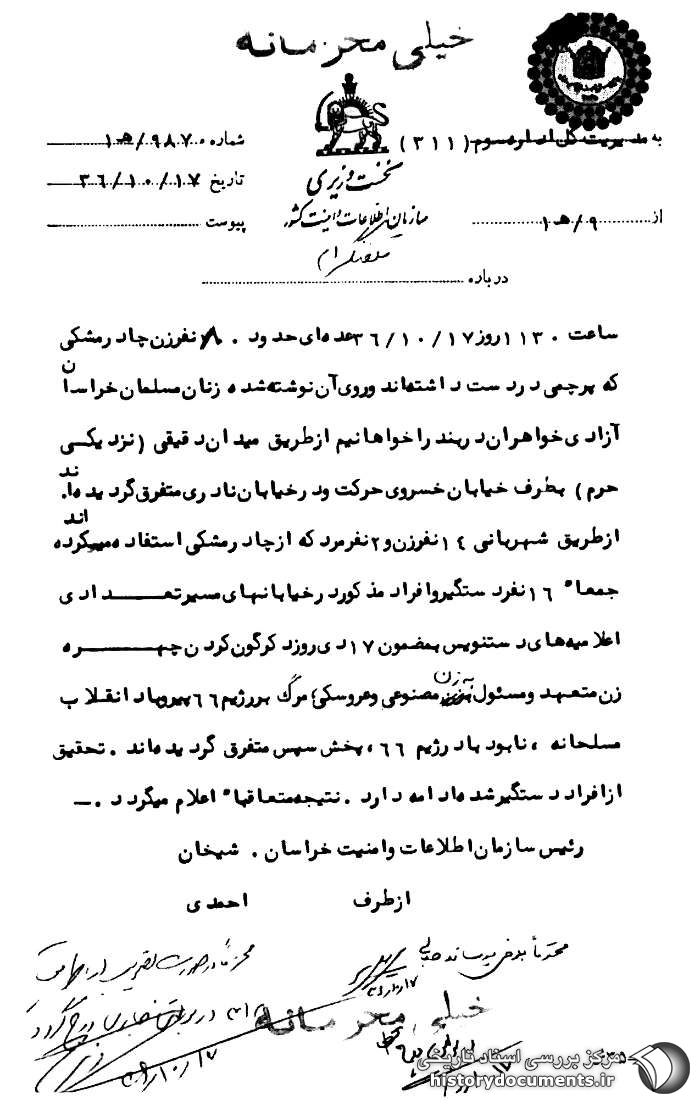 خیلی محرمانه
به مدیریت کل اداره سوم (۳۱۱)
شماره ۹۸۷/ه۱
نخست وزیری
تاریخ ۳۶/۱۰/۱۷
از ۹/ه۱
سازمان اطلاعات و امنیت کشور
پیوست
تلفنگرام
درباره
ساعت ۱۱۳۰ روز ۳۶/۱۰/۱۷ عده‌ای حدود ۸۰ نفر زن چادر مشکی
که پرچمی در دست داشته‌اند و روی آن نوشته شده زنان مسلمان خراسان
آزادی خواهران دربند را خواهانیم از طریق میدان دقیقی (نزدیکی
حرم) بطرف خیابان خسروی حرکت و در خیابان نادری متفرق گردیده‌اند.
از طریق شهربانی ۱۴ نفر زن و ۲ نفر مرد که از چادر مشکی استفاده میکرده‌اند
جمعا" ۱۶ نفر دستگیر و افراد مذکور در خیابانهای مسیر تعدادی
اعلامیه‌های دستنویس بمضمون ۱۷ دی روز دگرگون کردن چهره
زن متعهد و مسئول به زن مصنوعی و عروسکی، مرگ بر رژیم ۶۶ پیروباد انقلاب
مسلحانه ، نابود باد رژیم ۶۶ ، پخش سپس متفرق گردیده‌اند . تحقیق
از افراد دستگیر شده ادامه دارد . نتیجه متعاقبا" اعلام میگردد .—
رئیس سازمان اطلاعات و امنیت خراسان . شیخان
از طرف احمدی
محترماً بعرض میرساند
۳۶/۱۰/۱۷
خیلی محرمانه
۳۶/۱۰/۱۷
مرکز بررسی اسناد تاریخی
historydocuments.ir